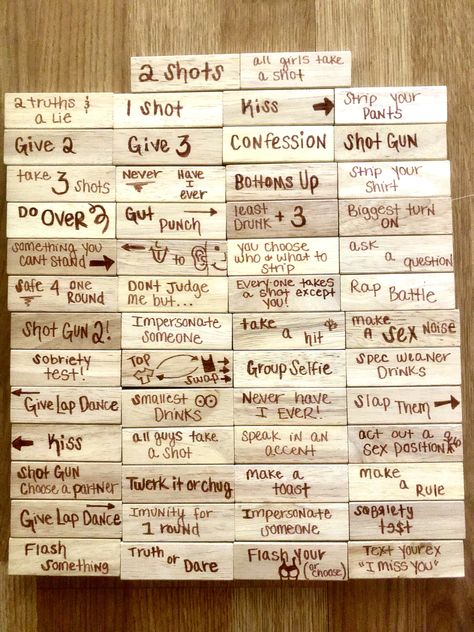 2 shots
all girls take
a shot
2 truths &
a Lie
1 shot
Kiss
Strip your
Pants
Give 2
Give 3
Confession
Shot Gun
take
3 shots
Never Have
I
ever
Bottoms Up
Strip your
Shirt
Do Over 2
Gut
Punch
least
Drunk + 3
Biggest turn
on
something you
cant stand
to
you choose
who & what to
strip
ask
a question
Safe 4 one
Round
Dont Judge
me but...
Everyone takes
a shot except
you!
Rap Battle
Shot Gun 2!
Impersonate
someone
take
a hit
make
a Sex Noise
Sobriety
test!
Top
swap
Group Selfie
Spec weaner
Drinks
Give Lap Dance
smallest
Drinks
Never have
I EVER!
Slap Them
Kiss
all guys take
a shot
speak in an
accent
act out a
sex position
Shot Gun
Choose a partner
Twerk it or chug
make a
toast
make
a Rule
Give Lap Dance
Imunity for
1 round
Impersonate
someone
Flash
something
Truth
or Dare
Flash your
(or
choose)
Text your ex
"I miss you"